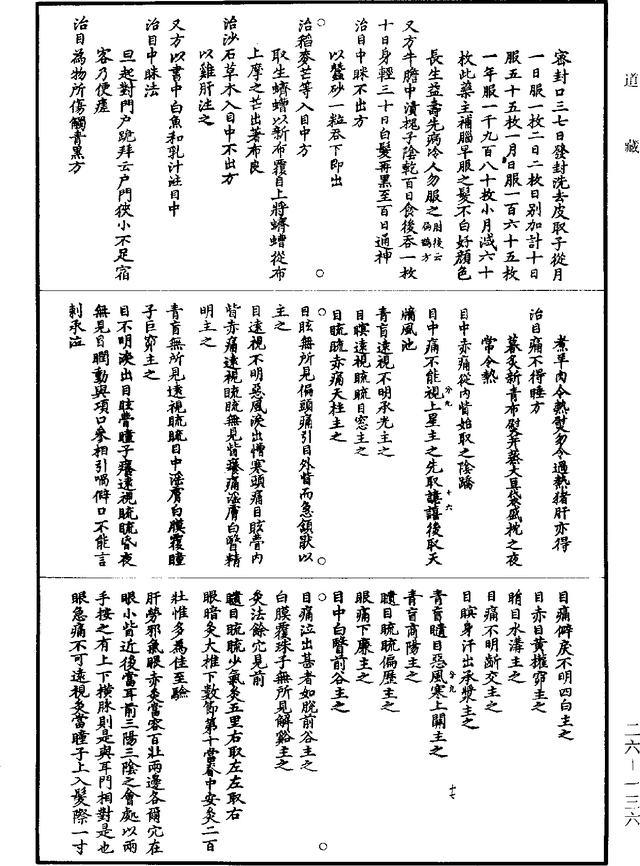 道藏
密封口三七日發封洗去皮取子從月
一日服一枚二日二枚日别加計十日
服五十五枚一月日服一百六十五枚
一年服一千九百八十枚小月減六十
枚此藥主補腦早服之髮不白好顔色
長生益壽先病冷人勿服之肘後云扁鵲方
又方牛膽中漬槐子陰乾百日食後吞一枚
十日身輕三十日白髮再黑至百日通神
治目中眯不出方
以蠶砂一粒吞下即出
治稻麥芒等入目中方
取生蠐螬以新布覆目上將蠐螬從布
上摩之芒出著布良
治沙石草木入目中不出方
以雞肝注之
又方以書中白魚和乳汁注目中
治目中眯法
旦起對門户跪拜云户門狹小不足宿
客乃便瘥
治目為物所傷觸青黑方
煮羊肉令熱熨勿令過熱猪肝亦得
治目痛不得睡方
暮炙新青布熨并蒸大豆袋盛枕之夜
常令熱
目中赤痛從内眥始取之陰蹻
目中痛不能視上星主之先取譩譆後取天
牖風池
青盲遠視不明承光主之
目瞑遠視䀮䀮目窓主之
目䀮䀮赤痛天柱主之
目眩無所見偏頭痛引目外眥而急頷猒以
主之
目遠視不明惡風淚出憎寒頭痛目眩瞢内
眥赤痛遠視䀮䀮無見眥癢痛淫膚白瞖精
明主之
青盲無所見遠視䀮䀮目中淫膚白膜覆瞳
子巨窌主之
目不明淚出目眩瞢瞳子癢遠視䀮䀮昏夜
無見目瞤動與項口參相引喎僻口不能言
刺承泣
目痛僻戾不明四白主之
目赤目黄權窌主之
睊目水溝主之
目痛不明齗交主之
目瞑身汗出承漿主之
青盲䁾目惡風寒上關主之
青盲商陽主之
䁾目䀮䀮偏歷主之
眼痛下廉主之
目中白瞖前谷主之
目痛泣出甚者如脱前谷主之
白膜覆珠子無所見解谿主之
灸法餘穴見前
䁾目䀮䀮少氣灸五里右取左左取右
眼暗灸大椎下數節第十當脊中安灸二百
壯惟多為佳至驗
肝勞邪氣眼赤灸當容百壯兩邊各爾穴在
眼小眥近後當耳前三陽三陰之會處以兩
手按之有上下横脉則是與耳門相對是也
眼急痛不可遠視灸當瞳子上入髮際一寸
二六－一三六